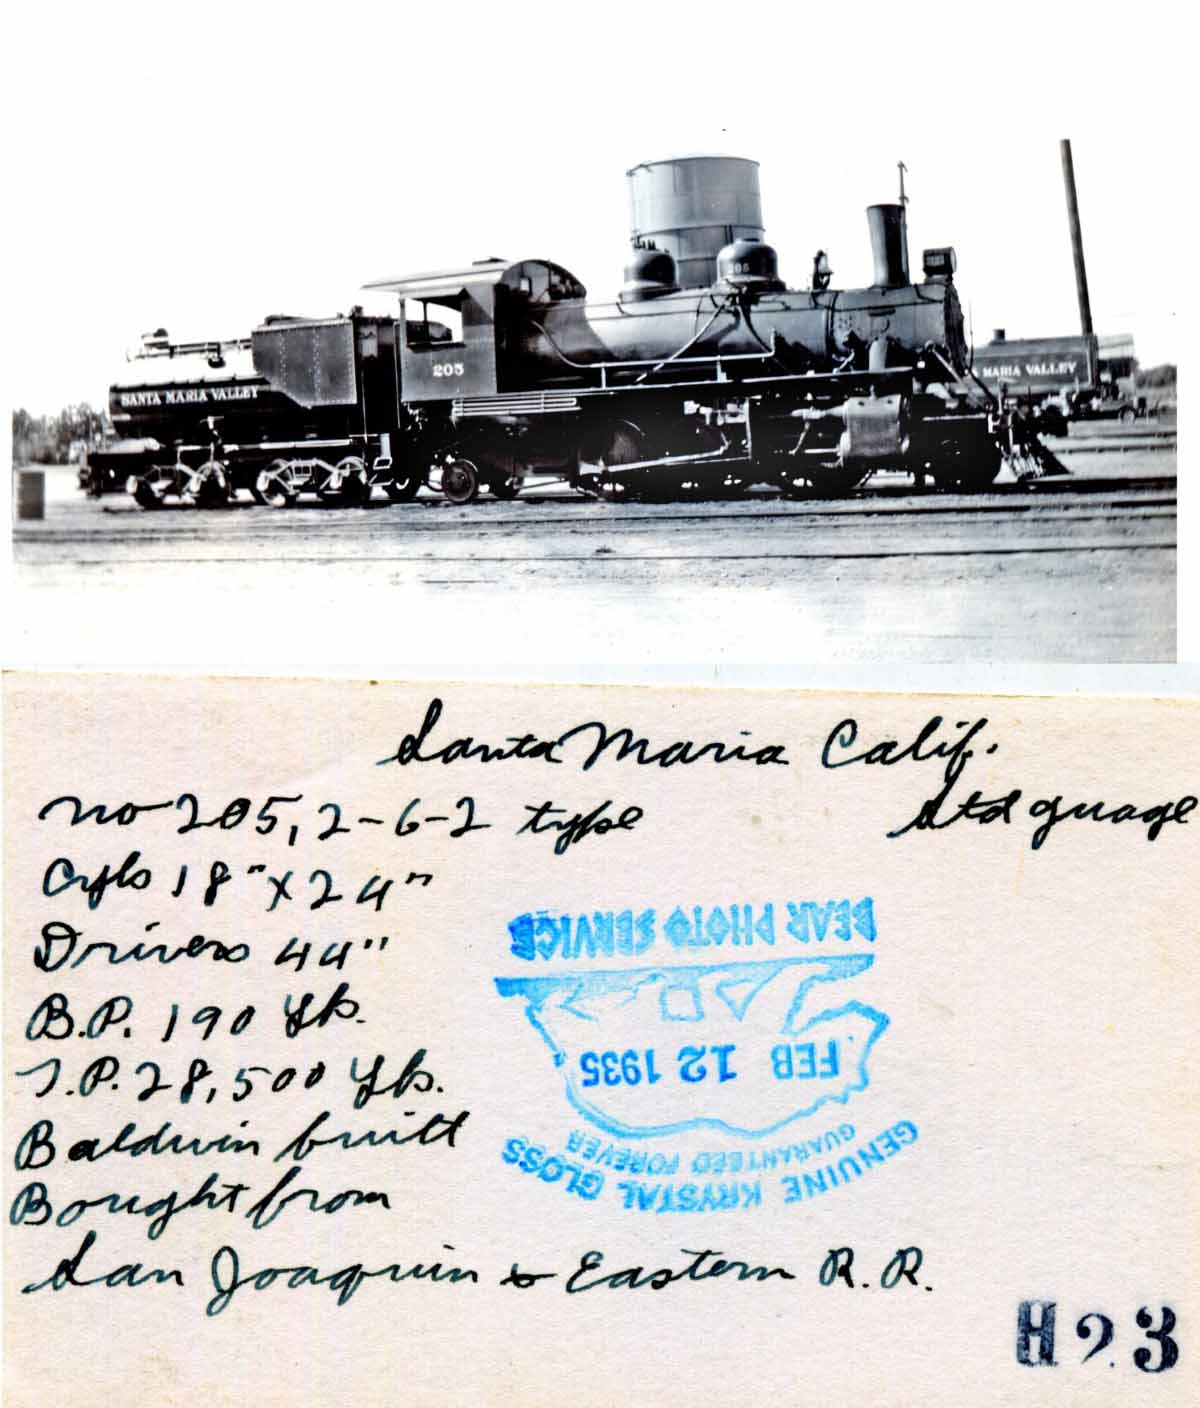 205
205
SANTA MARIA VALLEY
MARIA VALLEY
Santa Maria Calif.
no 205, 2-6-2 type
Std guage
Cyls 18" x 24"
Drivers 44"
B.P. 190 lbs.
T.P. 28,500 lbs.
Baldwin built
Bought from
San Joaquin & Eastern R.R.
GENUINE KRYSTAL GLOSS
GUARANTEED FOREVER
FEB 12 1935
BEAR PHOTO SERVICE
H23